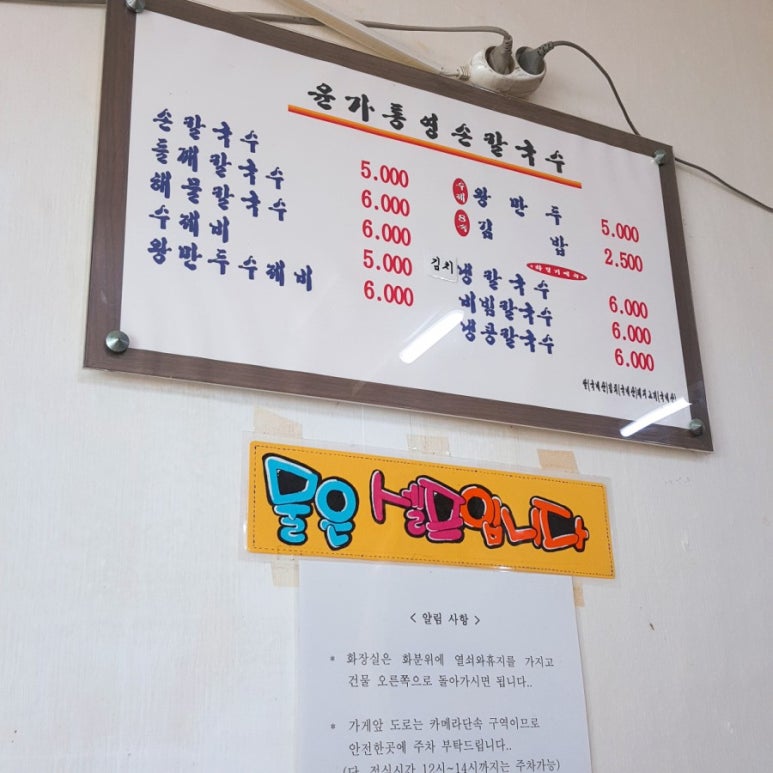 윤가통영손칼국수
손칼국수 5.000
들깨칼국수 6.000
해물칼국수 6.000
수제비 5.000
왕만두수제비 6.000
수제 왕만두 5.000
8개
김밥 2.500
*하절기메뉴*
냉칼국수 6.000
김치 비빔칼국수 6.000
냉콩칼국수 6.000
물은 셀프입니다
< 알림 사항 >
* 화장실은 화분위에 열쇠와휴지를 가지고
건물 오른쪽으로 돌아가시면 됩니다..
* 가게앞 도로는 카메라단속 구역이므로
안전한곳에 주차 부탁드립니다..
(단, 점심시간 12시~14시까지는 주차가능)